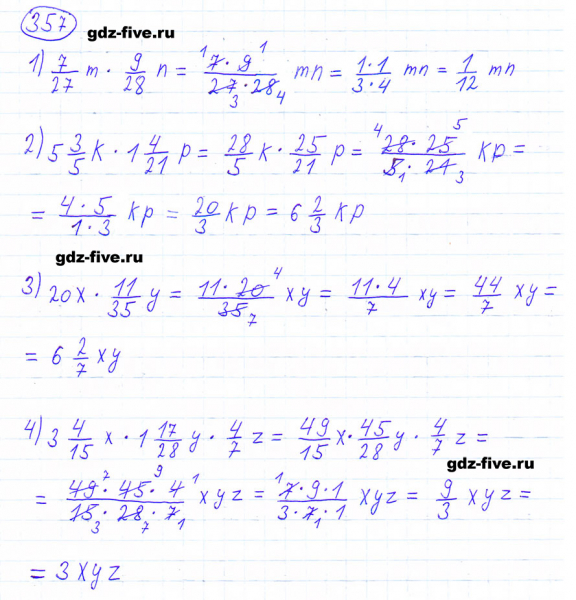 357
gdz-five.ru
1) 7/27 m · 9/28 n = 7 · 9 / 27 · 28 mn = 1·1 / 3·4 mn = 1/12 mn
2) 5 3/5 k · 1 4/21 p = 28/5 k · 25/21 p = 28 · 25 / 5 · 21 kp =
= 4 · 5 / 1 · 3 kp = 20/3 kp = 6 2/3 kp
gdz-five.ru
3) 20x · 11/35 y = 11 · 20 / 35 xy = 11 · 4 / 7 xy = 44/7 xy =
= 6 2/7 xy
4) 3 4/15 x · 1 17/28 y · 4/7 z = 49/15 x · 45/28 y · 4/7 z =
gdz-five.ru
= 49 · 45 · 4 / 15 · 28 · 7 xyz = 7 · 9 · 1 / 3 · 7 · 1 xyz = 9/3 xyz =
= 3xyz